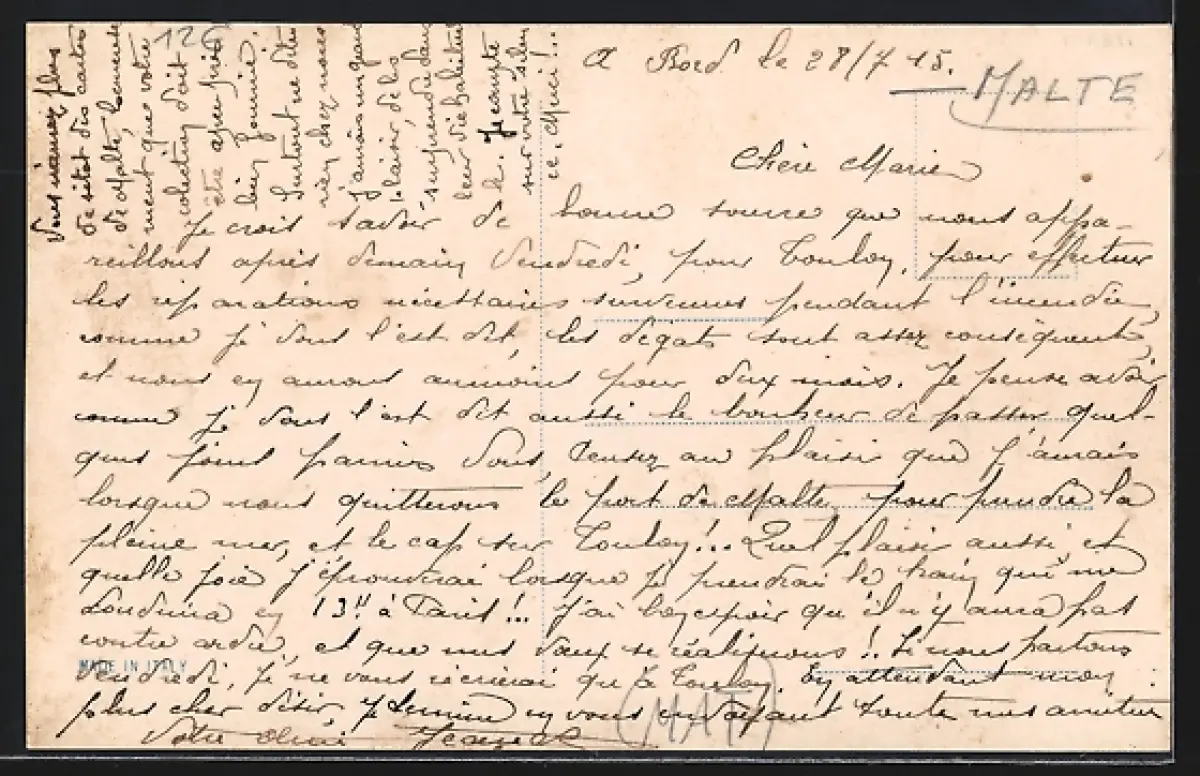 126
A Bord le 28/7 15.
MALTE
Chère Marie
Je crois savoir de bonne source que nous appa-
reillons après demain Vendredi, pour Toulon, pour effectuer
les réparations nécessaires survenues pendant l'incendie,
comme je vous l'est dit, les dégats sont assez conséquents,
et nous en aurons aumoins pour deux mois. Je pense avoir
comme je vous l'est dit aussi le bonheur de passer quel-
ques jours parmis vous, Pensez au plaisir que j'aurais
lorsque nous quitterons le port de Malte, pour prendre la
pleine mer, et le cap sur Toulon!.. Quel plaisir aussi, et
quelle joie j'éprouverai lorsque je prendrai le train qui me
conduira en 13h à Paris!.. J'ai bon espoir qu'il n'y aura pas
contre ordre, et que mes vœux se réaliserons!. Si nous partons
Vendredi, je ne vous écrirai qu'à Toulon. En attendant mon
plus cher désir, je termine en vous envoyant toute mes amitiés
Votre ami
MADE IN ITALY
(MAT)
Vous n'aurez plus
de sitot des cartes
de Malte, heureuse
ment que votre
collection doit
être à peu près
bien fournie.
Surtout ne dites
rien chez nous
j'aurais un grand
plaisir de les
surprendre dans
leur vie habituel
le. Je compte
sur votre silen
ce. Merci!..